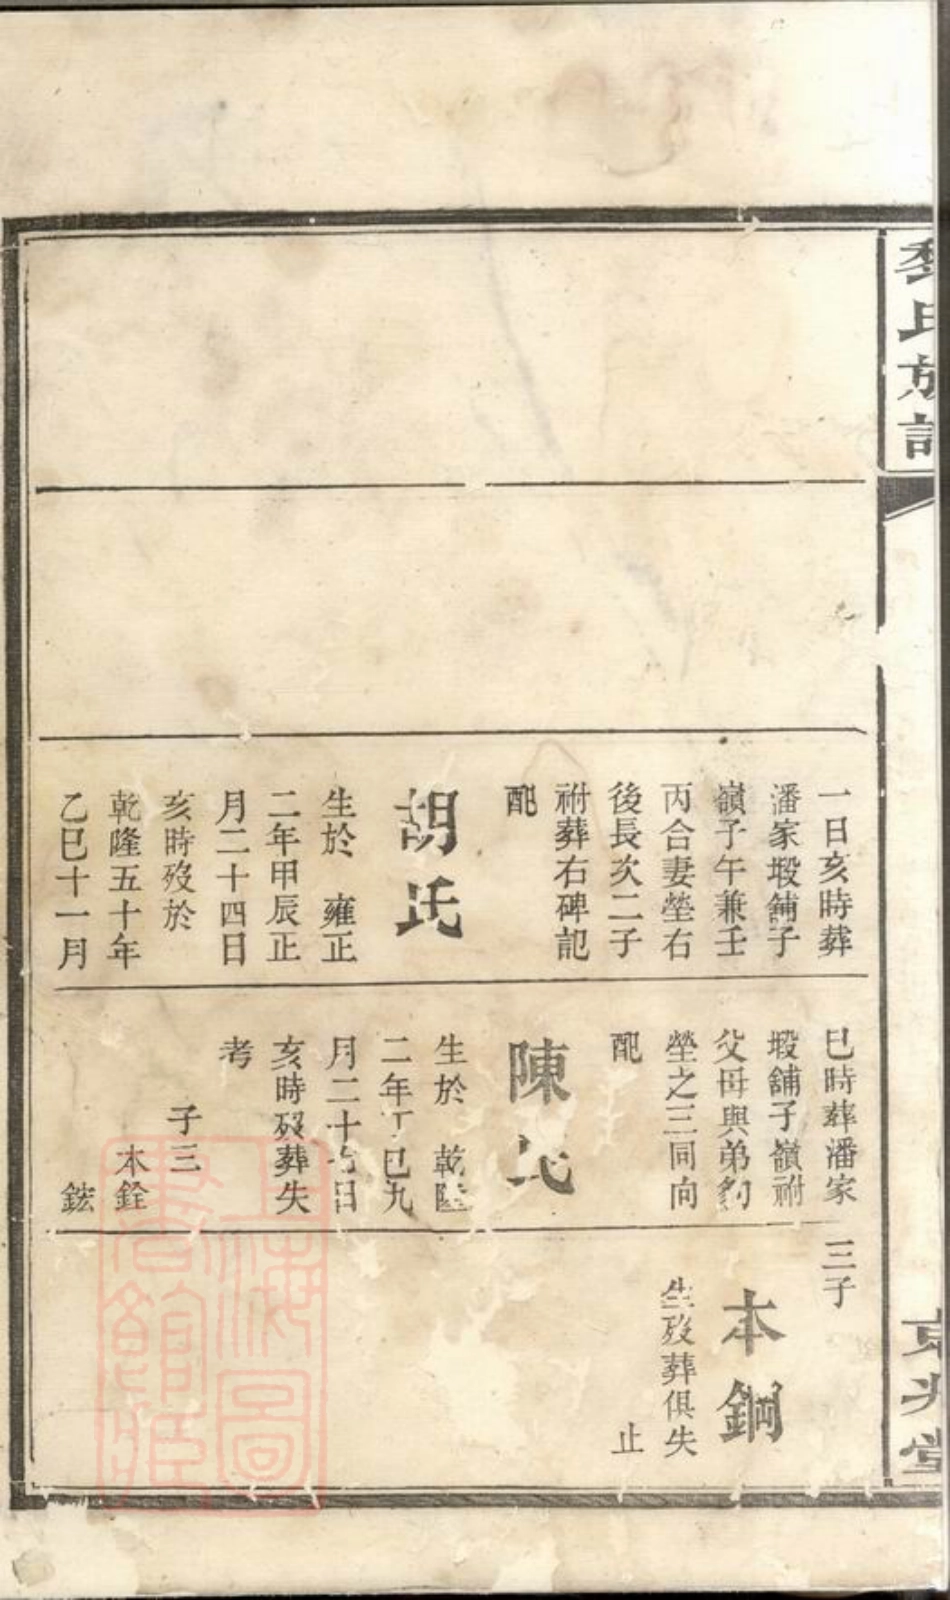 氏族譜
京兆堂
一日亥時葬
潘家塅舖子
嶺子午兼壬
丙合妻塋右
後長次二子
祔葬右碑記
配
胡氏
生於 雍正
二年甲辰正
月二十四日
亥時歿於
乾隆五十年
乙巳十一月
巳時葬潘家
塅舖子嶺祔
父母與弟
塋之三同向
配
陳氏
生於 乾隆
二年丁巳九
月二十七日
亥時歿葬失
考
子三
本銓
鋐
三子
本鋼
生歿葬俱失
止
上海圖書館藏